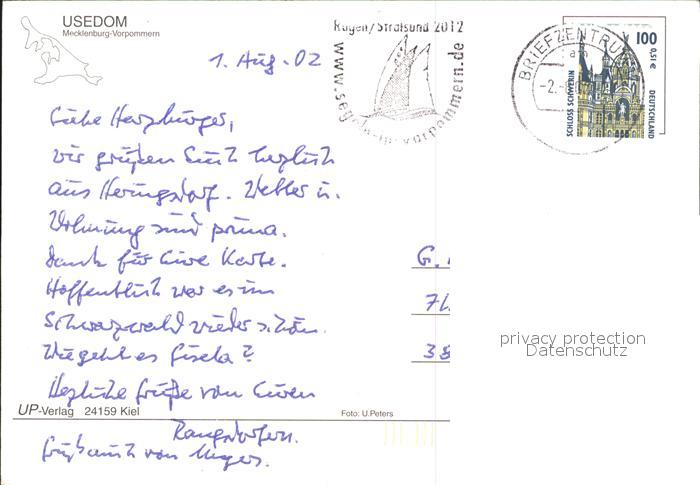 USEDOM
Mecklenburg-Vorpommern
Rügen/Stralsund 2012
www.segeln-in-vorpommern.de
BRIEFZENTRUM
-2.-
100
0,51 €
SCHLOSS SCHWERIN
DEUTSCHLAND
1. Aug. 02
Liebe Harzburger,
wir grüßen Euch herzlich
aus Heringsdorf. Wetter u.
Wohnung sind prima.
Dank für Eure Karte.
Hoffentlich war es im
Schwarzwald wieder schön.
Wie geht es Gisela?
Herzliche Grüße von Euren
Rangsdorfern.
Grüßt auch von
G.
71
38
privacy protection
Datenschutz
UP-Verlag 24159 Kiel
Foto: U.Peters